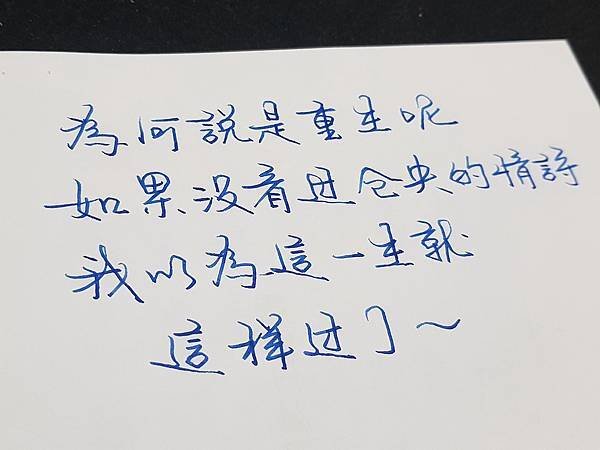 為何説是重生呢
如果没看过仓央的情詩
我以為這一生就
這样过了～